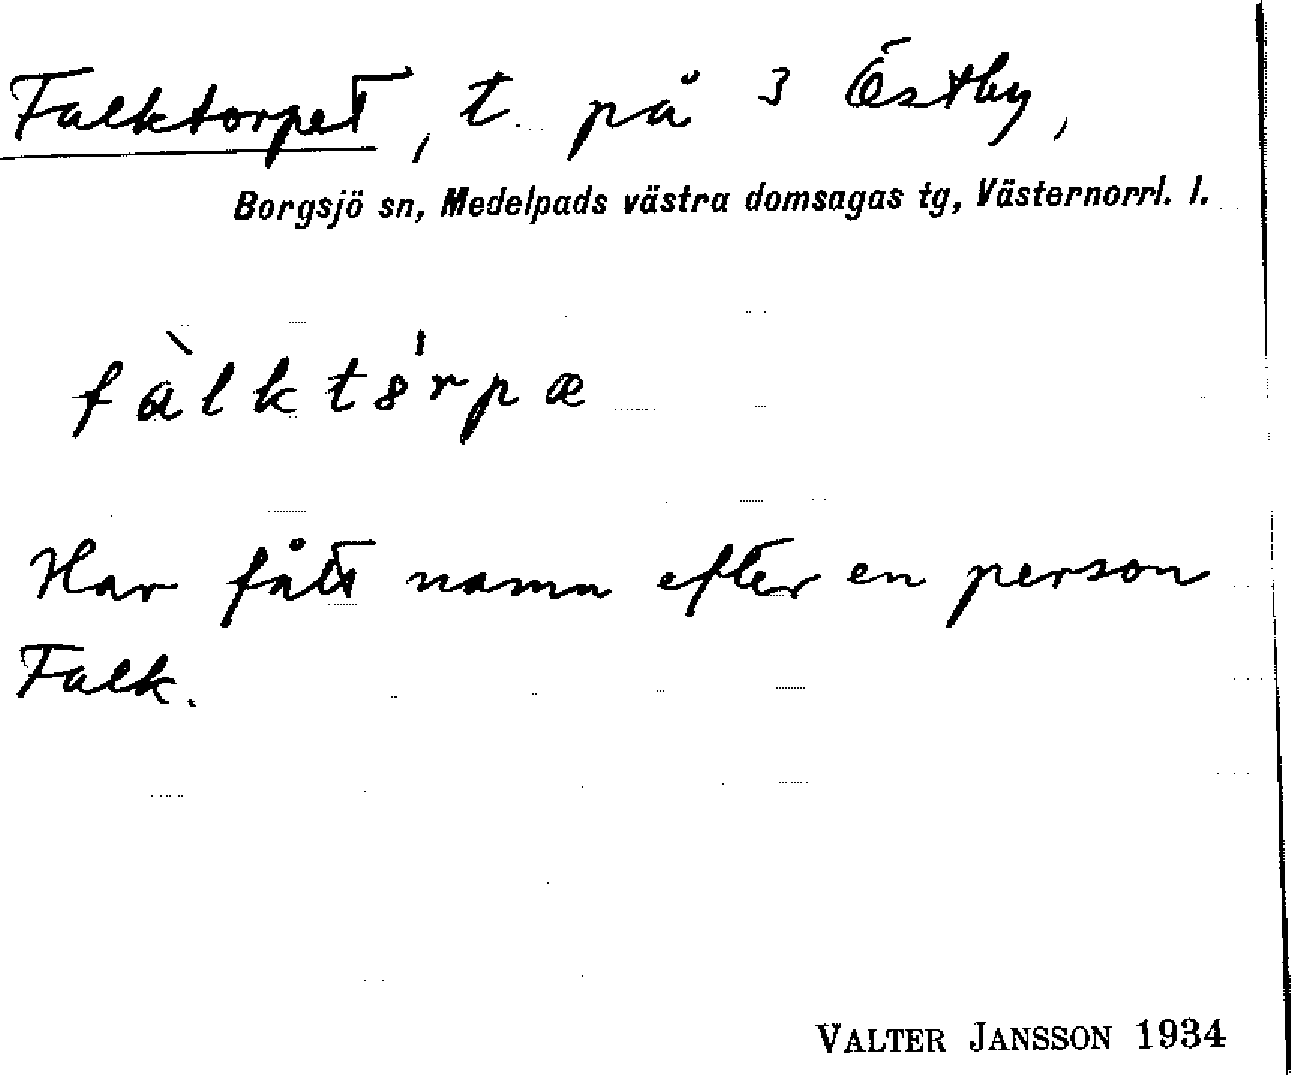 Falktorpet, t. på 3 Östby,
Borgsjö sn, Medelpads västra domsagas tg, Västernorrl. l.
fàlktȣ'rpæ
Har fått namn efter en person
Falk.
VALTER JANSSON 1934